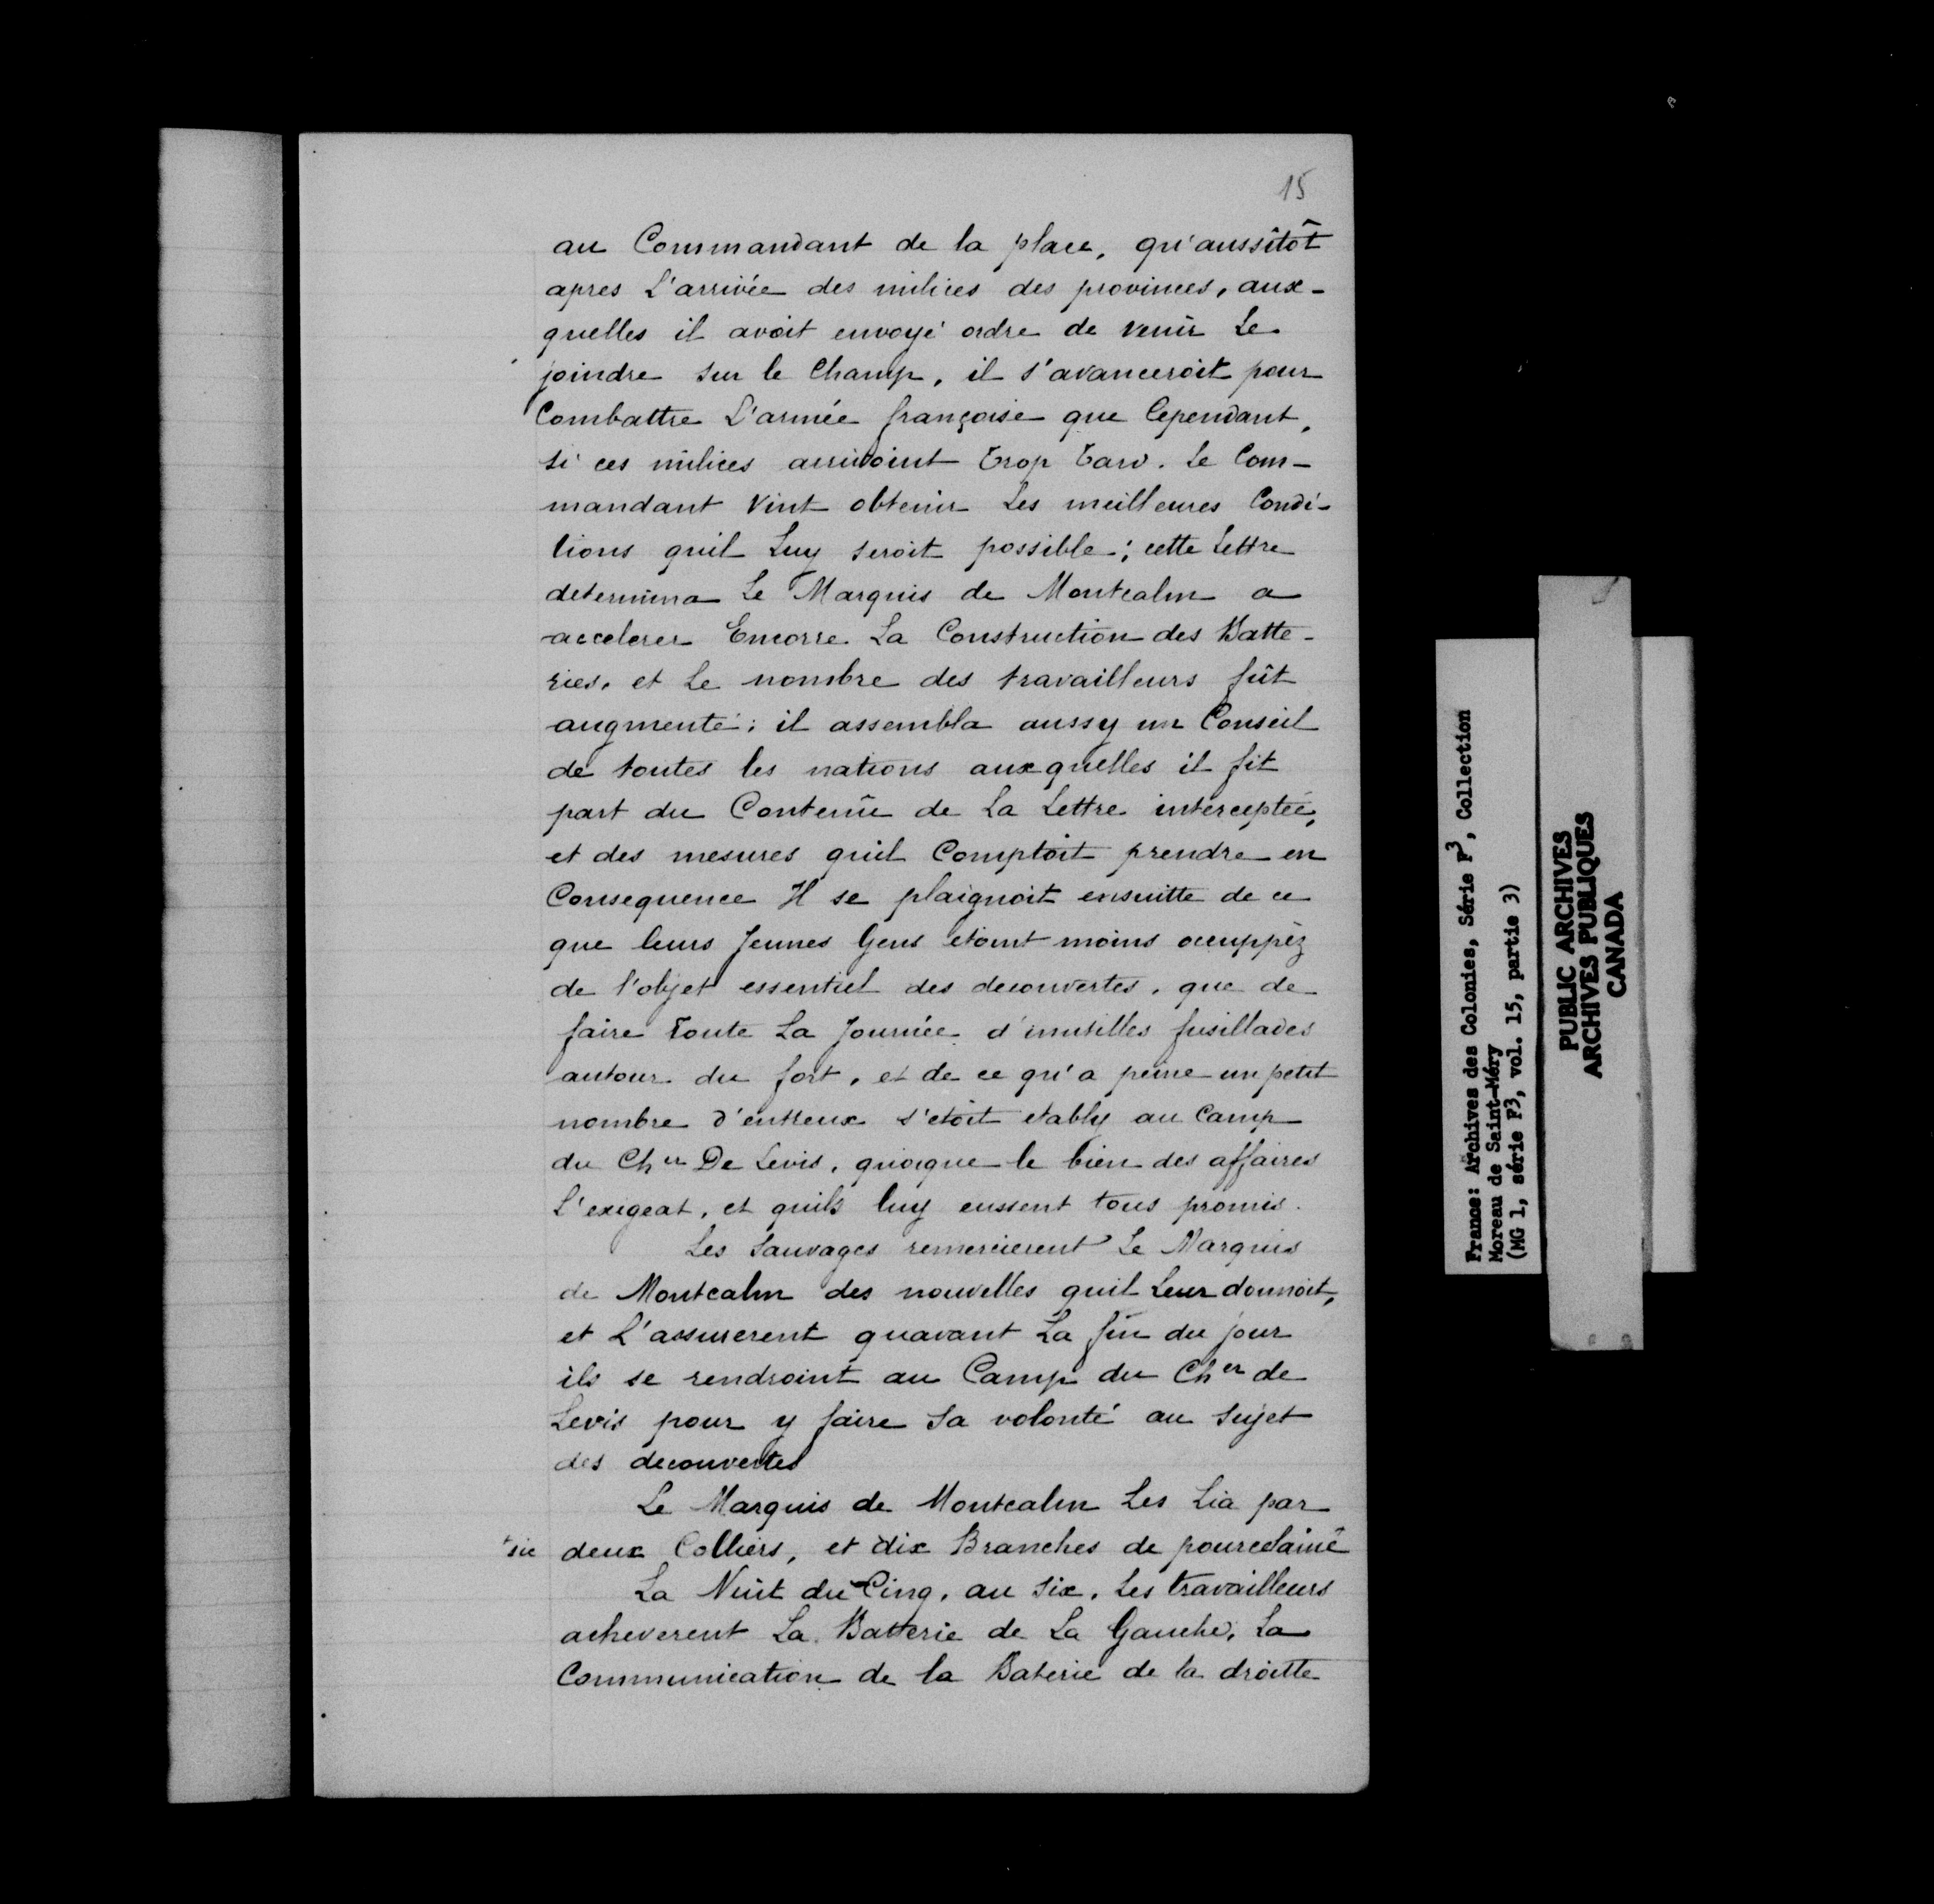 15
au Commandant de la place, qu'aussitôt
apres L'arrivée des milices des provinces, aux-
quelles il avoit envoyé ordre de venir Le
joindre sur le Champ, il s'avanceroit pour
Combattre L'armée françoise que Cependant,
si ces milices arrivoint Trop Tard. Le Com-
mandant Vint obtenir Les meilleures Condi-
tions quil Luy seroit possible; cette Lettre
determina Le Marquis de Montcalm a
accelerer Encorre La Construction des Batte-
ries, et Le nombre des travailleurs fût
augmenté; il assembla aussy un Conseil
de toutes les nations auxquelles il fit
part du Contenu de La Lettre interceptée,
et des mesures quil Comptoit prendre en
Consequence Il se plaignoit ensuitte de ce
que leurs Jeunes Gens etoint moins occuppéz
de l'objet essentiel des decouvertes, que de
faire Toute La Journée d'inutilles fusillades
autour du fort, et de ce qu'a peine un petit
nombre d'entreux s'etoit etably au Camp
du Cher De Levis, quoique le bien des affaires
L'exigeat, et quils luy eussent tous promis.
Les Sauvages remercierent Le Marquis
de Montcalm des nouvelles quil Leur donnoit,
et L'assurerent quavant La fin du jour
ils se rendroint au Camp du Cher de
Levis pour y faire Sa volonté au Sujet
des decouvertes
Le Marquis de Montcalm Les Lia par
+sic deux Colliers, et dix Branches de pourcelaine
La Nuit du Cinq, au Six, Les travailleurs
acheverent La Batterie de La Gauche, La
Communication de la Baterie de la droitte
France: Archives des Colonies, Série F3, Collection
Moreau de Saint-Méry
(MG 1, série F3, vol. 15, partie 3)
PUBLIC ARCHIVES
ARCHIVES PUBLIQUES
CANADA